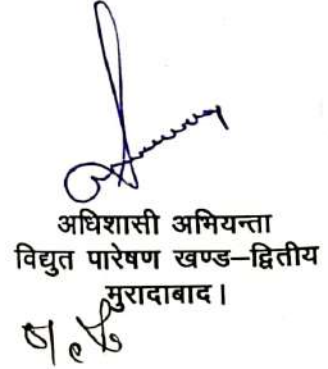 अधिशासी अभियन्ता
विद्युत पारेषण खण्ड–द्वितीय
मुरादाबाद।